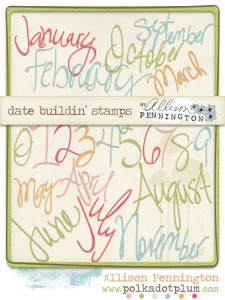 January
September
October
February
March
date buildin' stamps
BY Allison
PENNINGTON
0 1 2 3 4 5 6 7 8 9
May April
August
June July
November
Allison Pennington
www.polkadotplum.com